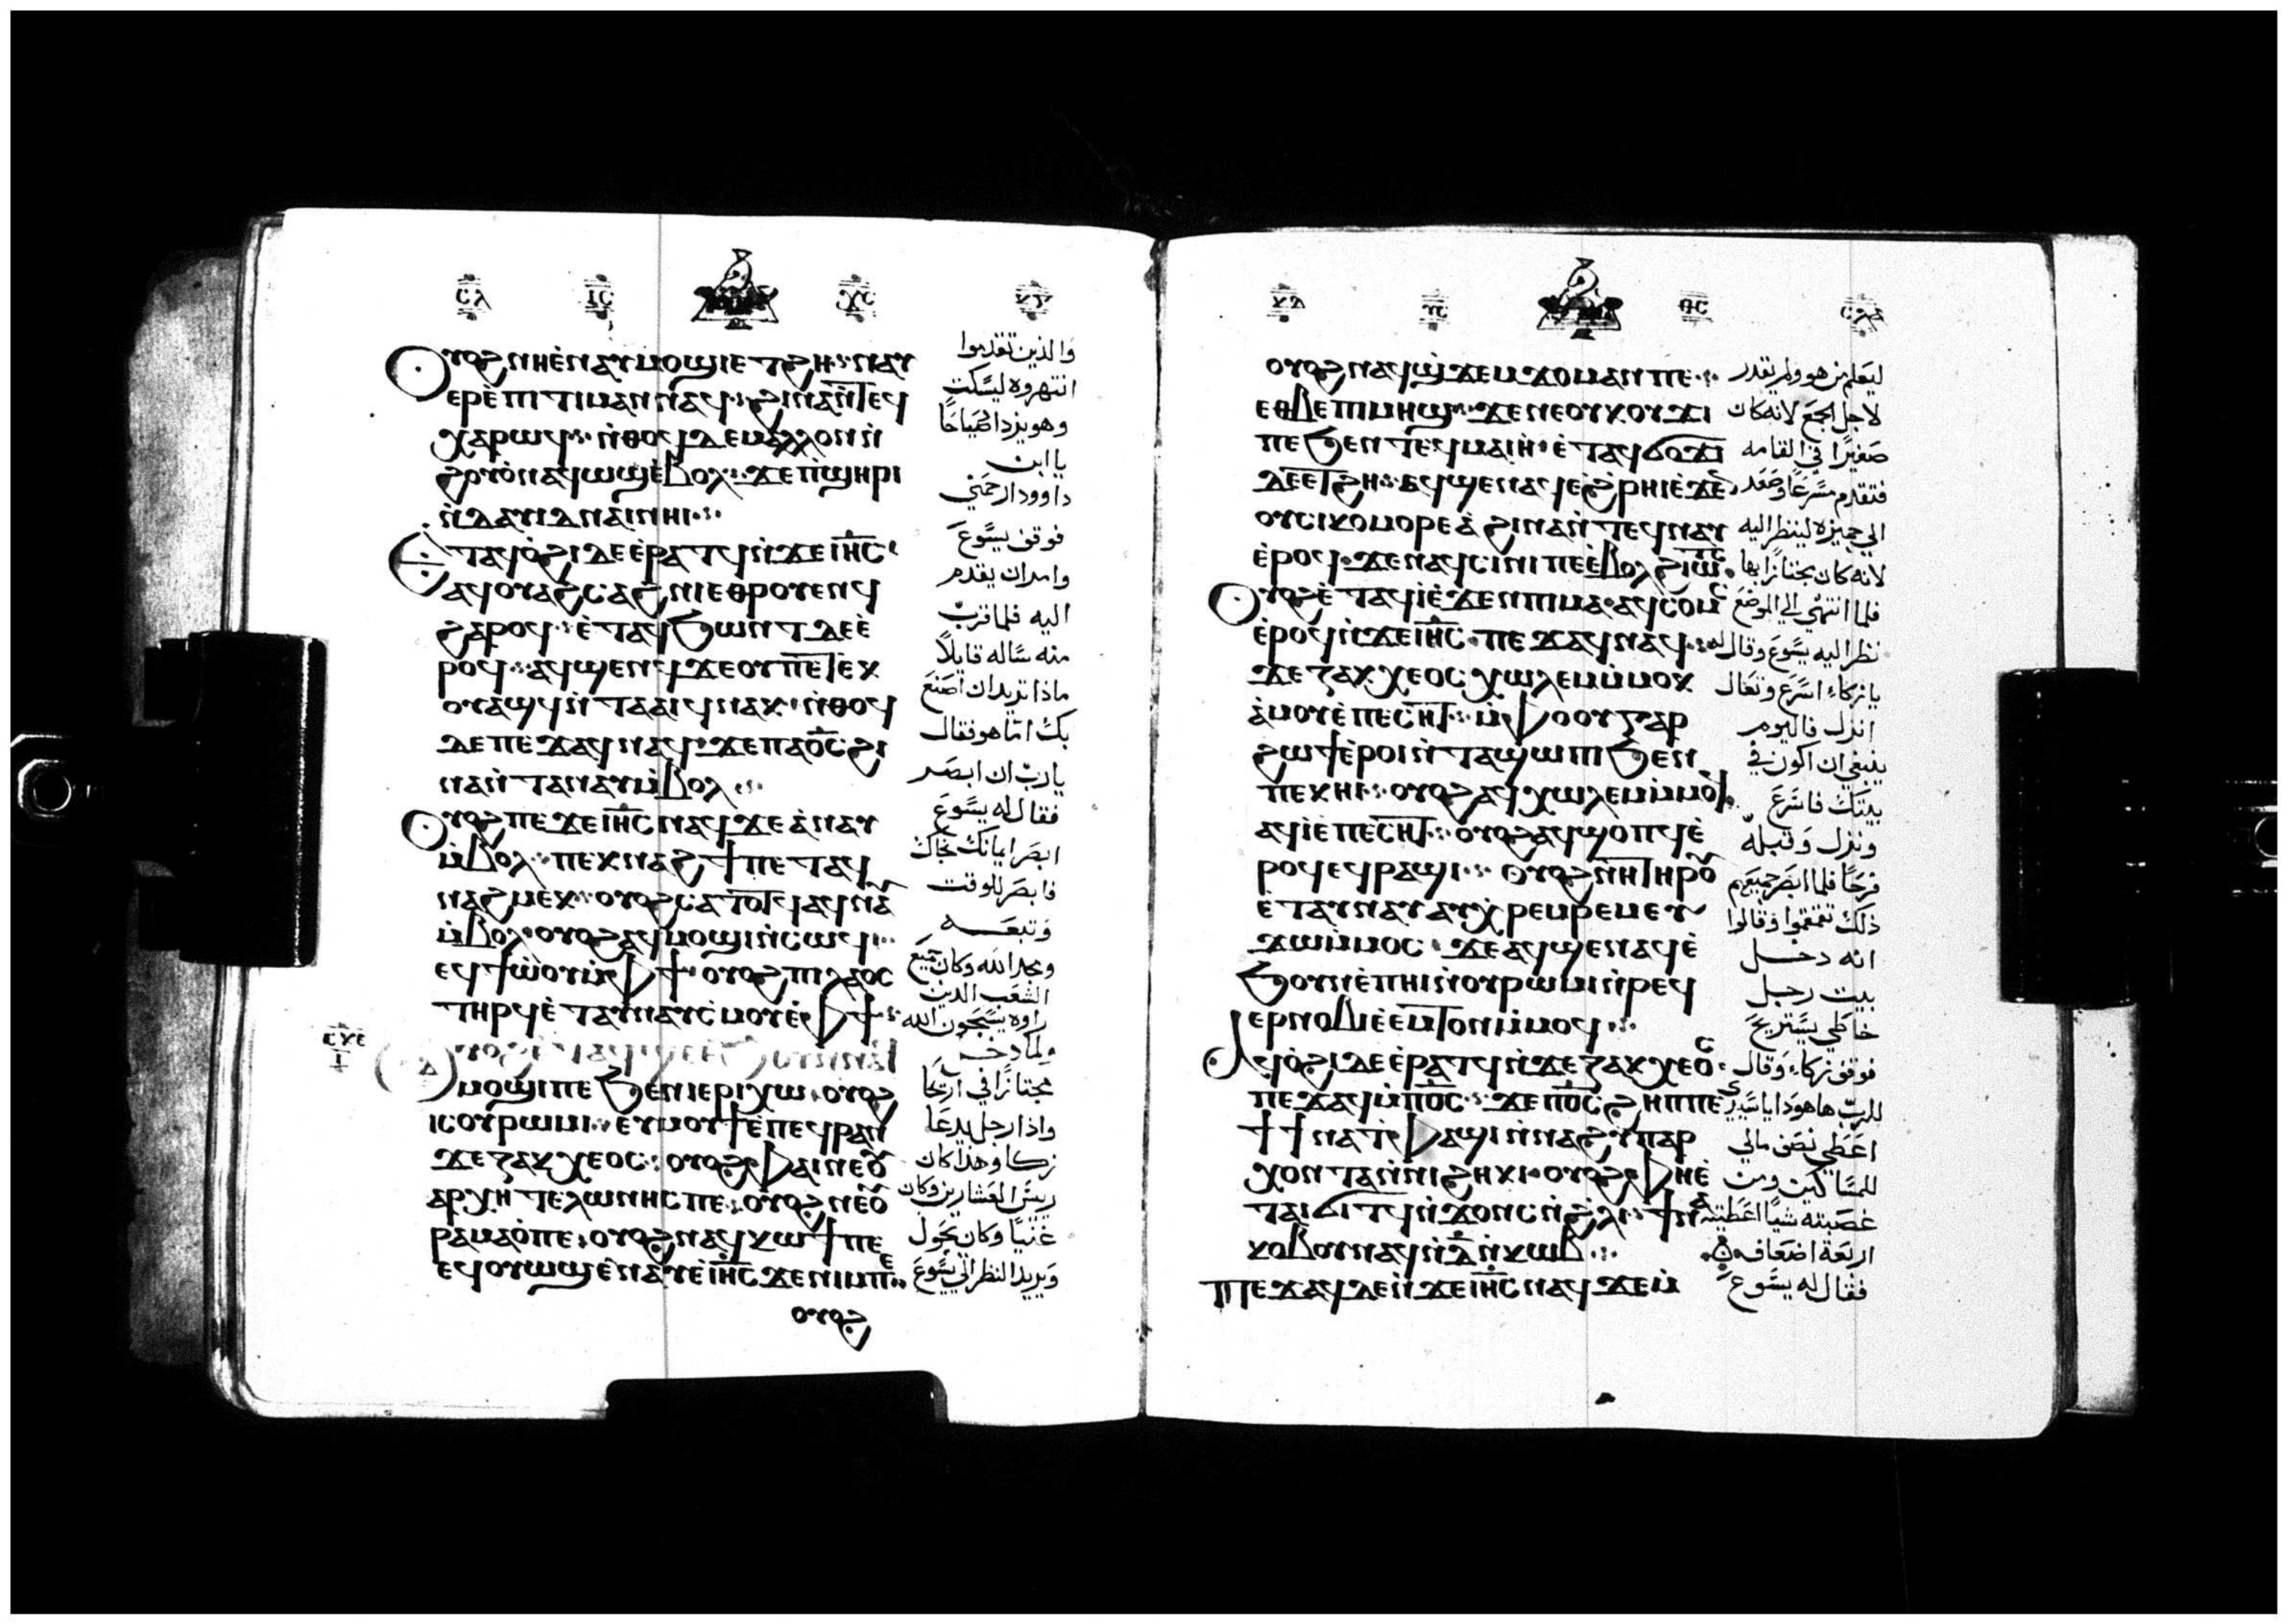 ⲥⲗ ⲓⲥ ⲭⲥ ⲕⲅ
Ⲟⲩⲟϩ ⲛⲏⲉ̀ⲛⲁⲩⲙⲟϣⲓ ⲉⲧϩⲏ ⲛⲁⲩ
ⲉⲣⲉ̀ⲡⲓⲧⲓⲙⲁⲛ ⲛⲁϥ ϩⲓⲛⲁ ⲛ̀ⲧⲉϥ
ⲭⲁⲣⲱϥ ⲛ̀ⲑⲟϥ ⲇⲉ ⲙⲁⲗⲗⲟⲛ ⲛ̀
ϩⲟⲩⲟ̀ ⲛⲁϥⲱϣ ⲉ̀ⲃⲟⲗ ϫⲉ ⲡ̀ϣⲏⲣⲓ
ⲛ̀ⲇⲁⲩⲓⲇ ⲛⲁⲓ ⲛⲏⲓ
Ⲉⲧⲁϥⲟ̀ϩⲓ ⲇⲉ ⲉ̀ⲣⲁⲧϥ ⲛ̀ϫⲉ ⲓⲏ̅ⲥ
ⲁϥⲟⲩⲁϩⲥⲁϩⲛⲓ ⲉⲑⲣⲟⲩⲉⲛϥ
ϩⲁⲣⲟϥ ⲉ̀ⲧⲁϥϧⲱⲛⲧ ⲇⲉ ⲉ̀
ⲣⲟϥ ⲁϥϣⲉⲛϥ ϫⲉ ⲟⲩ ⲡⲉⲧⲉⲕ
ⲟⲩⲁϣϥ ⲛ̀ⲧⲁⲁⲓϥ ⲛⲁⲕ ⲛ̀ⲑⲟϥ
ⲇⲉ ⲡⲉϫⲁϥ ⲛⲁϥ ϫⲉ ⲡⲁⲟ̅ⲥ ϩⲓ
ⲛⲁ ⲛ̀ⲧⲁⲛⲁⲩ ⲙ̀ⲃⲟⲗ
Ⲟⲩⲟϩ ⲡⲉϫⲉ ⲓⲏ̅ⲥ ⲛⲁϥ ϫⲉ ⲁ̀ⲛⲁⲩ
ⲙ̀ⲃⲟⲗ ⲡⲉⲕⲛⲁϩϯ ⲡⲉⲧⲁϥ
ⲛⲁϩⲙⲉⲕ ⲟⲩⲟϩ ⲥⲁⲧⲟⲧϥ ⲁϥⲛⲁⲩ
ⲙ̀ⲃⲟⲗ ⲟⲩⲟϩ ⲁϥⲙⲟϣⲓ ⲛ̀ⲥⲱϥ
ⲉϥϯⲱ̀ⲟⲩ ⲙ̀ⲫϯ ⲟⲩⲟϩ ⲡⲓⲗⲁⲟⲥ
ⲧⲏⲣϥ ⲉ̀ⲧⲁⲩⲛⲁⲩ ⲥⲙⲟⲩ ⲉ̀ⲫϯ
ⲙⲟϣⲓ ⲡⲉ ϧⲉⲛ ⲓⲉⲣⲓⲭⲱ ⲟⲩⲟϩ
ⲓⲥ ⲟⲩⲣⲱⲙⲓ ⲉⲩⲙⲟⲩϯ ⲉ̀ⲡⲉϥⲣⲁⲛ
ϫⲉ ⲍⲁⲕⲭⲉⲟⲥ ⲟⲩⲟϩ ⲫⲁⲓ ⲛⲉ ⲟⲩ
ⲁⲣⲭⲏⲧⲉⲗⲱⲛⲏⲥ ⲡⲉ ⲟⲩⲟϩ ⲛⲉ ⲟⲩ
ⲣⲁⲙⲁⲟ̀ ⲡⲉ ⲟⲩⲟϩ ⲛⲁϥⲕⲱϯ ⲡⲉ
ⲉϥⲟⲩⲱϣ ⲉ̀ⲛⲁⲩ ⲉ̀ ⲓⲏ̅ⲥ ϫⲉ ⲛⲓⲙ ⲡⲉ
ⲟⲩⲟϩ
والذين تقدموا
انتهروه ليسكت
وهو يزداد صياحا
يا ابن
داوود ارحمني
فوقف يسوع
وامر ان يقدم
اليه فلما قرب
منه ساله قايلا
ماذا تريد ان اصنع
بك اما هو فقال
يا رب ان ابصر
فقال له يسوع
ابصر ايمانك نجاك
فابصر للوقت
وتبعه
ومجد الله وكان جميع
الشعب الذين
راوه يسبحون الله
ولما دخل
مجتازا في اريحا
واذا رجل يدعا
زكا وهذا كان
رييس العشارين وكان
غنيا وكان يحول
ويريد النظر الي يسوع
ⲕⲇ ⲩⲥ ⲑⲥ ⲥⲗⲁ
ⲟⲩⲟϩ ⲛⲁϥϣ̀ϫⲉⲙϫⲟⲙ ⲁⲛ ⲡⲉ
ⲉⲑⲃⲉ ⲡⲓⲙⲏϣ ϫⲉ ⲛⲉ ⲟⲩⲕⲟⲩϫⲓ
ⲡⲉ ϧⲉⲛ ⲧⲉϥⲙⲁⲓⲏ̀ ⲉ̀ⲧⲁϥϭⲟϫⲓ
ⲇⲉ ⲉⲧϩⲏ ⲁϥϣⲉ ⲛⲁϥ ⲉ̀ϩⲣⲏⲓ ⲉ̀ϫⲉⲛ
ⲟⲩⲥⲓⲕⲟⲙⲟⲣⲉⲁ̀ ϩⲓⲛⲁ ⲛ̀ⲧⲉϥⲛⲁⲩ
ⲉ̀ⲣⲟϥ ϫⲉ ⲛⲁϥⲥⲓⲛⲓ ⲡⲉ ⲉ̀ⲃⲟⲗ ϩⲓⲱⲧⲥ
Ⲟⲩⲟϩ ⲉ̀ⲧⲁϥⲓ̀ ⲉ̀ϫⲉⲛ ⲡⲓⲙⲁ ⲁϥⲥⲟⲙⲥ
ⲉ̀ⲣⲟϥ ⲛ̀ϫⲉ ⲓⲏ̅ⲥ ⲡⲉϫⲁϥ ⲛⲁϥ
ϫⲉ ⲍⲁⲕⲭⲉⲟⲥ ⲭⲱⲗⲉⲙ ⲙ̀ⲙⲟⲕ
ⲁ̀ⲙⲟⲩ ⲉ̀ⲡⲉⲥⲏⲧ ⲙ̀ⲫⲟⲟⲩ ⲅⲁⲣ
ϩⲱϯ ⲉ̀ⲣⲟⲓ ⲛ̀ⲧⲁϣⲱⲡⲓ ϧⲉⲛ
ⲡⲉⲕⲏⲓ ⲟⲩⲟϩ ⲁϥⲭⲱⲗⲉⲙ ⲙ̀ⲙⲟϥ
ⲁϥⲓ̀ ⲉ̀ⲡⲉⲥⲏⲧ ⲟⲩⲟϩ ⲁϥϣⲟⲡϥ ⲉ̀
ⲣⲟϥ ⲉϥⲣⲁϣⲓ ⲟⲩⲟϩ ⲛⲏ ⲧⲏⲣⲟⲩ
ⲉⲧⲁⲩⲛⲁⲩ ⲁⲩⲭ̀ⲣⲉⲙⲣⲉⲙ ⲉⲩ
ϫⲱ ⲙ̀ⲙⲟⲥ ϫⲉ ⲁϥϣⲉ ⲛⲁϥ ⲉ̀
ϧⲟⲩⲛ ⲉ̀ⲡⲏⲓ ⲛ̀ⲟⲩⲣⲱⲙⲓ ⲛ̀ⲣⲉϥ
ⲉⲣⲛⲟⲃⲓ ⲉ̀ⲙⲧⲟⲛ ⲙ̀ⲙⲟϥ
Ⲁϥⲟ̀ϩⲓ ⲇⲉ ⲉ̀ⲣⲁⲧϥ ⲛ̀ϫⲉ ⲍⲁⲕⲭⲉⲟⲥ
ⲡⲉϫⲁϥ ⲙ̀ⲡⲟ̅ⲥ ϫⲉ ⲡⲟ̅ⲥ ϩⲏⲡⲡⲉ
ϯϯ ⲛⲁ ⲧ̀ⲫⲁϣⲓ ⲛ̀ⲛⲁϩⲩⲡⲁⲣ
ⲭⲟⲛⲧⲁ ⲛ̀ⲛⲓϩⲏⲕⲓ ⲟⲩⲟϩ ⲫⲏ ⲉ̀
ⲧⲁⲓϭⲓⲧϥ ⲛ̀ϫⲟⲛⲥ ⲛ̀ϩⲗⲓ ϯⲛⲁ
ⲕⲟⲃⲟⲩ ⲛⲁϥ ⲛ̀ⲇ̅ ⲛ̀ⲕⲱⲃ
Ⲡⲉϫⲁϥ ⲇⲉ ⲛ̀ϫⲉ ⲓⲏ̅ⲥ ⲛⲁϥ ϫⲉ ⲙ̀
ليعلم من هو ولم يقدر
لاجل الجمع لانه كان
صغيرا في القامه
فتقدم مسرعا وصعد
الي جميزه لينظر اليه
لانه كان مجتازا بها
فلما انتهي الي الموضع
نظر اليه يسوع وقال له
يا زكاء اسرع وتعال
انزل فاليوم
ينبغي ان اكون في
بيتك فاسرع
ونزل وقبله
فرحا فلما ابصر جميعهم
ذلك تقمقموا وقالوا
انه دخل
بيت رجل
خاطي يستريح
فوقف زكاء وقال
للرب هاهوذا يا سيدي
اعطي نصف مالي
للمساكين ومن
غصبته شيا اعطيته
اربعة اضعاف
فقال له يسوع